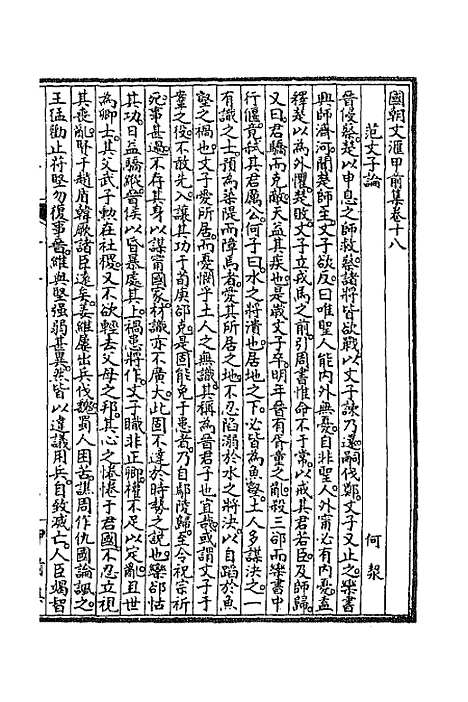 國朝文滙甲前集卷十八
范文子論　何絜
晉侵蔡楚以申息之師救蔡諸將皆欲戰以文子諫乃還嗣伐鄭文子又止之欒書
興師濟河聞楚師至文子欲反曰唯聖人能內外無憂自非聖人外甯必有內憂盍
釋楚以為外懼楚敗文子立戎馬之前引周書惟命不于常以戒其君若臣及師歸
又曰君驕而克敵天益其疾也是歲文子卒明年晉有胥童之亂殺三郤而欒書中
行偃竟弒其君厲公何子曰水之將潰也居地之下必皆為魚壑土人多謀決之一
有識之士預為築隄而障焉者愛其所居之地不忍陷溺於水之將決以自蹈於魚
壑之禍也文子愛所居而憂憫乎土人之無識其稱為晉君子也宜哉或謂文子于
鞌之役不敢先入讓其功于荀庚郤克是固能免于患者乃自鄢陵歸至令祝宗祈
死事甚過不存其身以謀甯國家材識亦不廣大此固不達於時勢之說也欒郤怙
其功日益驕蹤晉侯以昏暴處其上禍患將作文子職非正卿權不足以定亂且世
為卿士其父武子勲在社稷又不欲輕去父母之邦其心之惓惓于君國不忍立視
其喪亂賢于趙盾韓厥諸臣遠矣姜維屢出兵伐魏蜀人困苦譙周作仇國論諷之
王猛勸止苻堅勿復事晉維與堅强弱甚異然皆以違議用兵自致滅亡人臣竭智